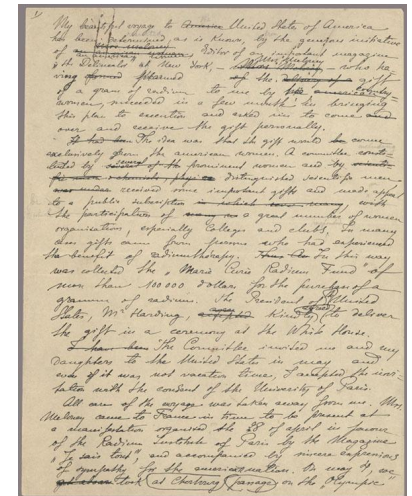 My beautiful voyage to United State of America
has been determined, as is known, by the generous initiative
of an american woman Mrs Meloney Editor of an important magazine
"the Delineator at New York, who ha
ving planned the gift
of a gram of radium to me by the american
women, succeeded in a few month in bringing
this plan to execution and asked me to come
over and receive the gift personally.
The idea was that the gift would come
exclusively from the american women. A committee
by several prominent women and distinguished scientific men
received some important gifts and made appeal
to a public subscription with
the participation of a great number of women
organisation, especially Colleges and clubs. In many
cases gifts came from persons who had experienced
the benefit of radiumtherapy. In this way
was collected the "Marie Curie Radium Fund" of
more than 100000 dollars for the purchase of a
gramme of radium. The President of the United
States, Mr Harding, kindly agreed to deliver
the gift in a ceremony at the White House.
The Committee invited me and my
daughters to the United State in may and
even if it was not vacation time, I accepted the invi-
tation with the consent of the University of Paris.
All care of the voyage was taken away from me. Mrs.
Meloney came to France in time to be present at
a manifestation organised the 28 of april in favour
of the Radium Institute of Paris by the Magazine
"Je sais tout", and accompanied by sincere expressions
of sympathy for the american nation. In may 4, we
took at Cherbourg passage on the Olympic"